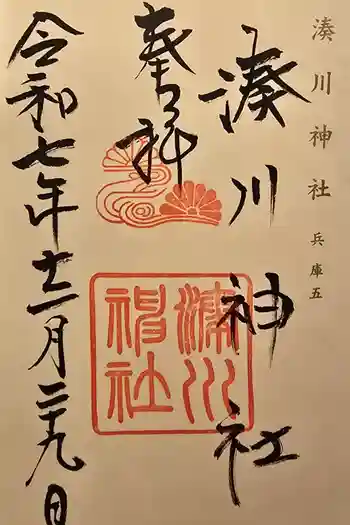 湊川神社 兵庫五
湊川神社
奉拝
湊川神社
令和七年十二月二十九日